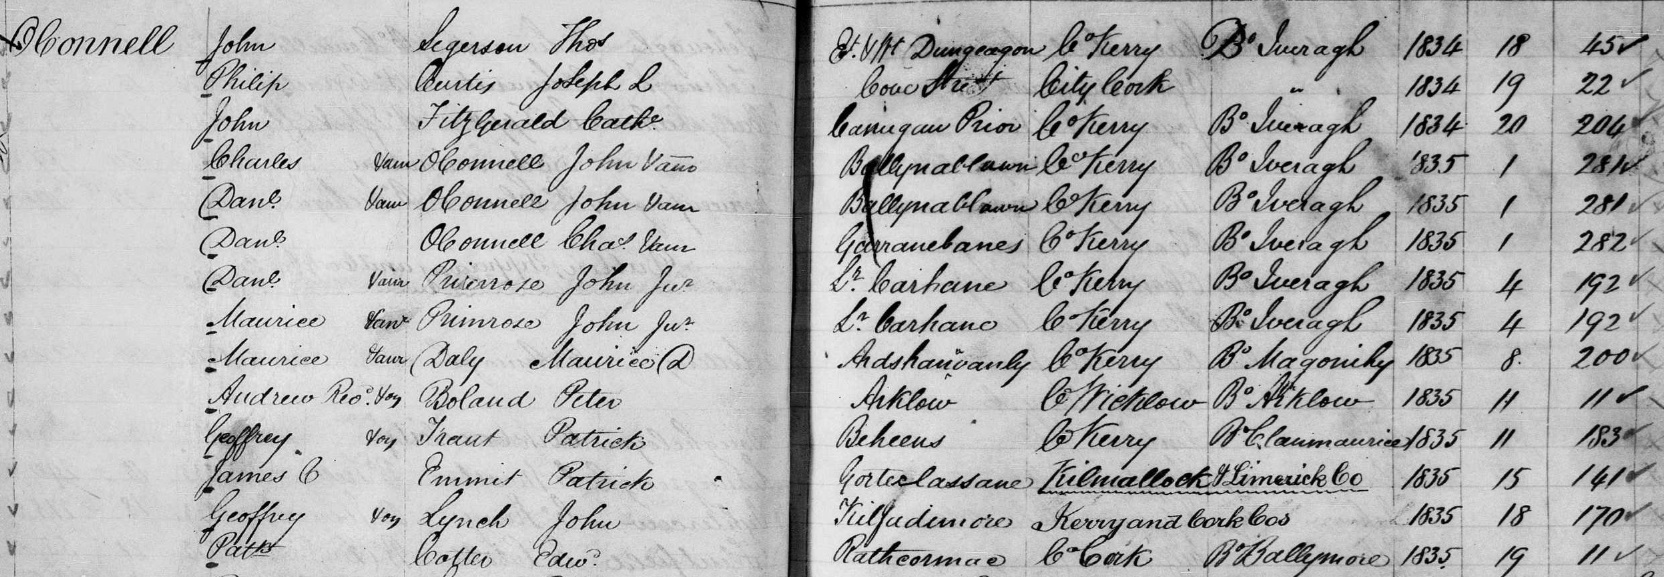 OConnell John Segerson Thos Et. & Wt Dungeagon Co Kerry Bo Iveragh 1834 18 45
Philip Curtis Joseph L Cove Street City Cork " 1834 19 22
John FitzGerald Cathe. Canugau Prior Co Kerry Bo Iveragh 1834 20 204
Charles &anr OConnell John &anr Ballynablawn Co Kerry Bo Iveragh 1835 1 281
Danl. &anr OConnell John &anr Ballynablawn Co Kerry Bo Iveragh 1835 1 281
Danl. OConnell Chas. &anr Garranebanes Co Kerry Bo Iveragh 1835 1 282
Danl. &anr Primrose John Junr Lr. Carhane Co Kerry Bo Iveragh 1835 4 192
Maurice &anr Primrose John Junr Lr. Carhane Co Kerry Bo Iveragh 1835 4 192
Maurice &anr Daly Maurice D Co Kerry Bo Magonihy 1835 8 200
Andrew Reo. &oy Boland Peter Arklow C Wicklow Bo Arklow 1835 11 11
Geoffrey &oy Trant Patrick Beheens C Kerry Bo Claumaurice 1835 11 183
James C Emmit Patrick Gorteclassane Kilmallock & Limerick Co 1835 15 141
Geoffrey &oy Lynch John Kilfademore Kerry and Cork Cos 1835 18 170
Patk Cotter Edwd. Rathcormac Co Cork Bo Ballymore 1835 19 11